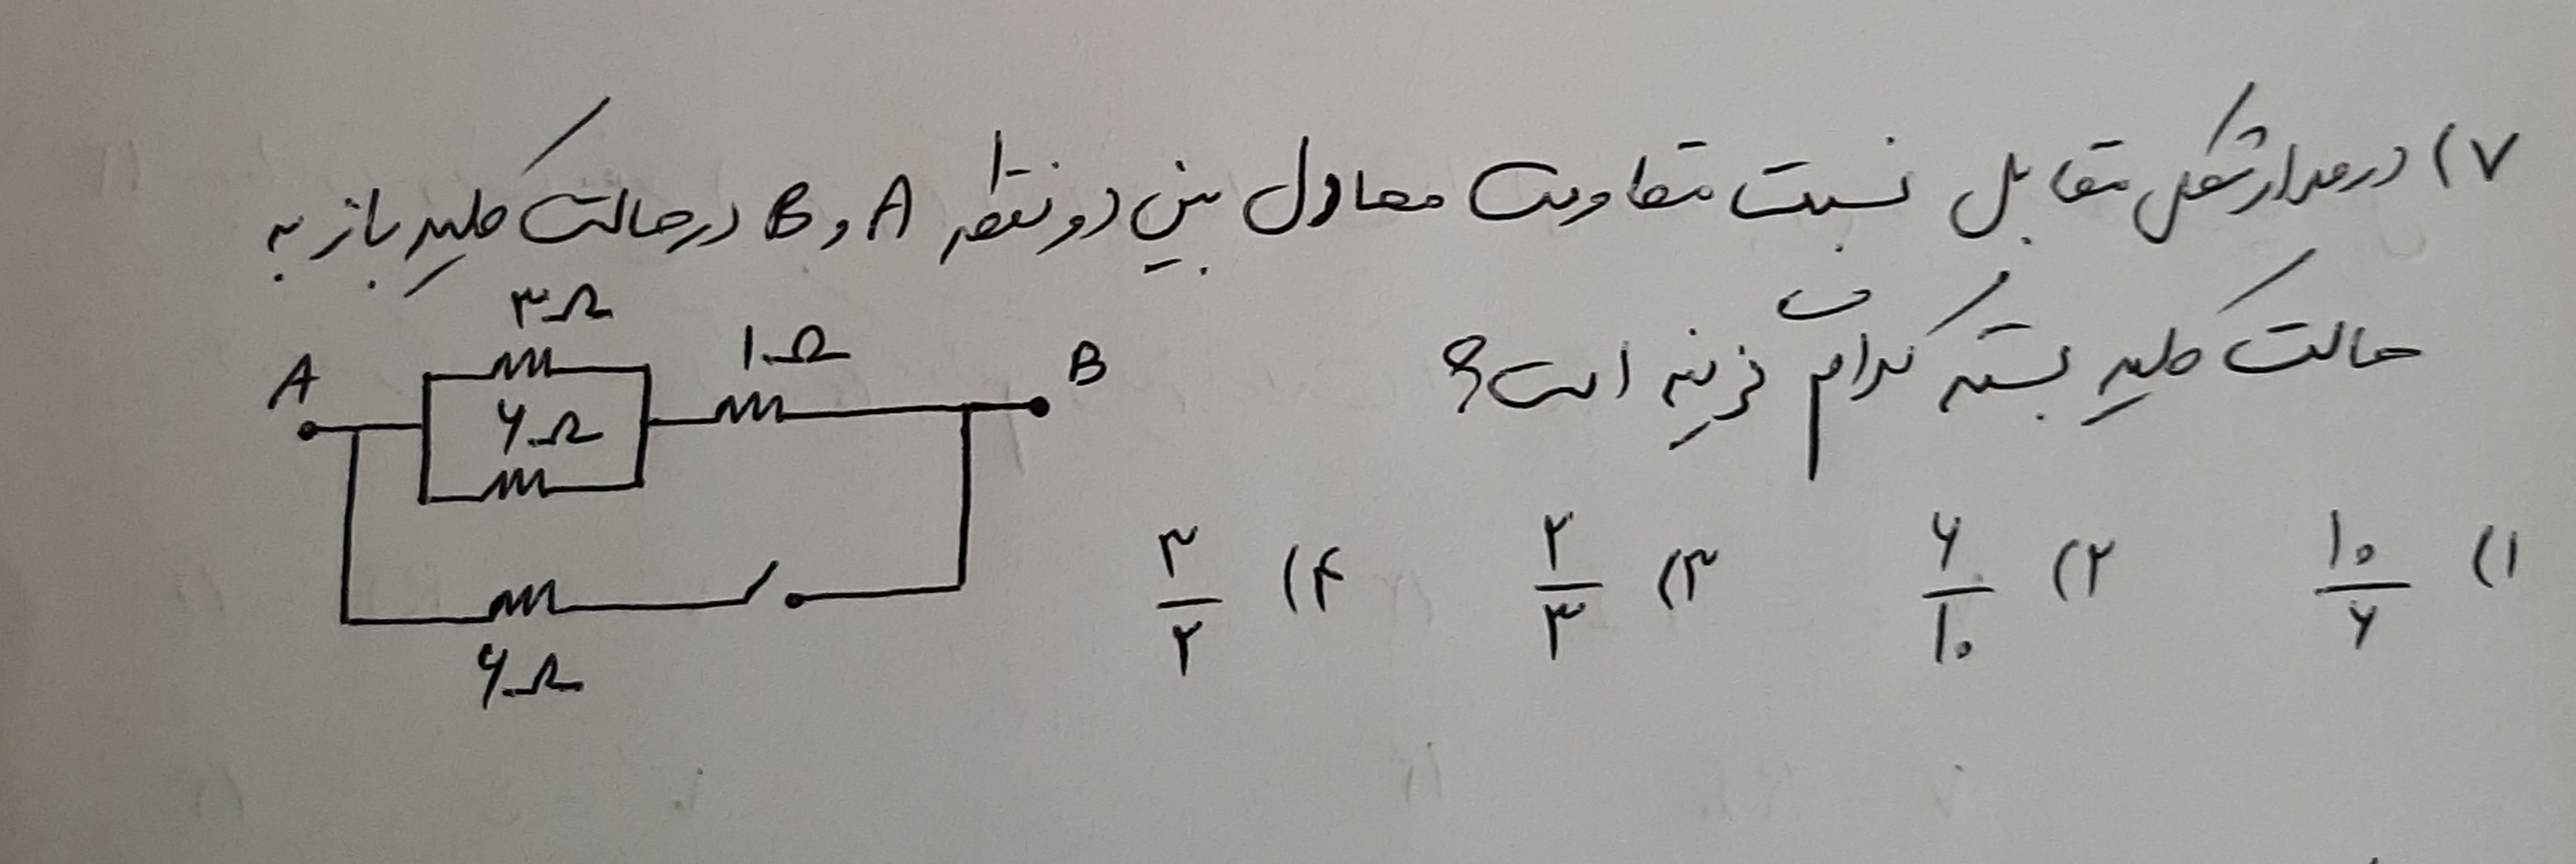 ۷) در مدار شکل مقابل نسبت مقاومت معادل بین دو نقطه A و B در حالت کلید باز به
حالت کلید بسته کدام گزینه است؟
۳Ω
A
۶Ω
۱Ω
B
۶Ω
۱) ۱۰/۶
۲) ۶/۱۰
۳) ۲/۳
۴) ۳/۲